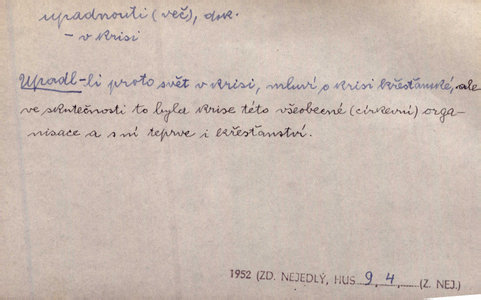 upadnouti (več), dok.
– v krisi
Upadl-li proto svět v krisi, mluví o krisi křesťanské, ale
ve skutečnosti to byla krise této všeobecné (církevní) orga-
nisace a s ní teprve i křesťanství.
1952 (ZD. NEJEDLÝ, HUS 9, 4, (Z. NEJ.)